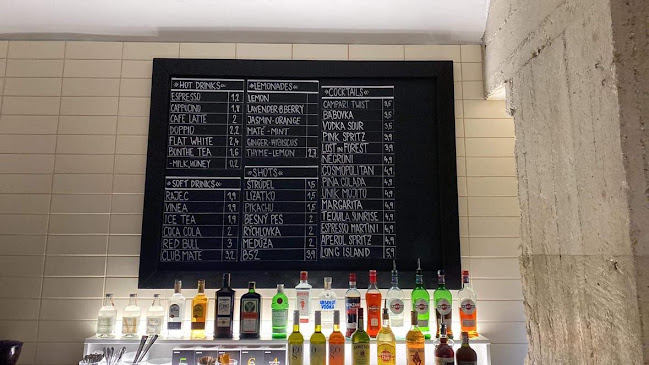 HOT DRINKS
ESPRESSO 1,2
CAPPUCINO 1,8
CAFE LATTE 2
DOPPIO 2,2
FLAT WHITE 2,4
BONTHE TEA 1,6
-MILK, HONEY 0,2
SOFT DRINKS
RAJEC 1,9
VINEA 1,9
ICE TEA 1,9
COCA COLA 2
RED BULL 3
CLUB MATE 3,2
LEMONADES
LEMON
LAVENDER-BERRY
JASMIN-ORANGE
MATE-MINT
GINGER-HIBISCUS
THYME-LEMON 2,3
SHOTS
ŠTRÚDEL 1,5
LÍZATKO 1,5
PIKACHU 1,5
BESNÝ PES 2
RÝCHLOVKA 2
MEDÚZA 2
B52 3,9
COCKTAILS
CAMPARI TWIST 3,5
BÁBOVKA 3,5
VODKA SOUR 3,5
PINK SPRITZ 3,9
LOST IN FOREST 3,9
NEGRONI 4,9
COSMOPOLITAN 4,9
PIŇA COLADA 4,9
UNIK MOJITO 4,9
MARGARITA 4,9
TEQUILA SUNRISE 4,9
ESPRESSO MARTINI 4,9
APEROL SPRITZ 4,9
LONG ISLAND 5,9
ABSOLUT
VODKA